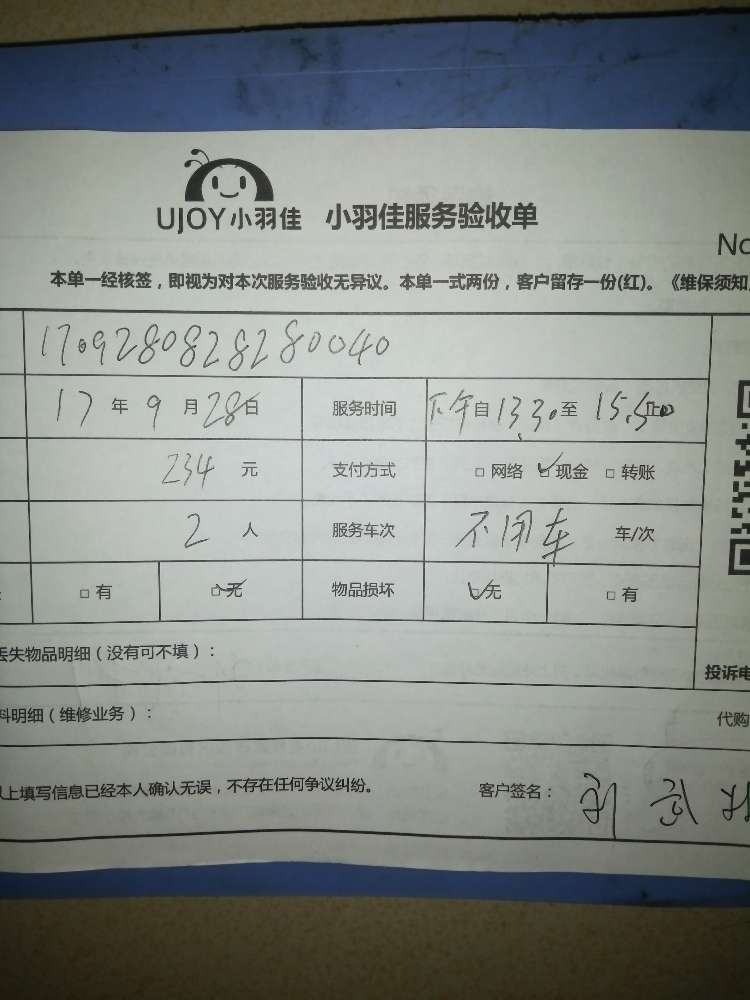 UJOY小羽佳 小羽佳服务验收单
No
本单一经核签，即视为对本次服务验收无异议。本单一式两份，客户留存一份(红)。《维保须知
1709280828280040
17 年 9 月 28 日 服务时间 下午 自 13.30 至 15.500
234 元 支付方式 □ 网络 ☑ 现金 □ 转账
2 人 服务车次 不用车 车/次
□ 有 ☑ 无 物品损坏 ☑ 无 □ 有
丢失物品明细（没有可不填）：
投诉电
料明细（维修业务）：
代购
以上填写信息已经本人确认无误，不存在任何争议纠纷。 客户签名：